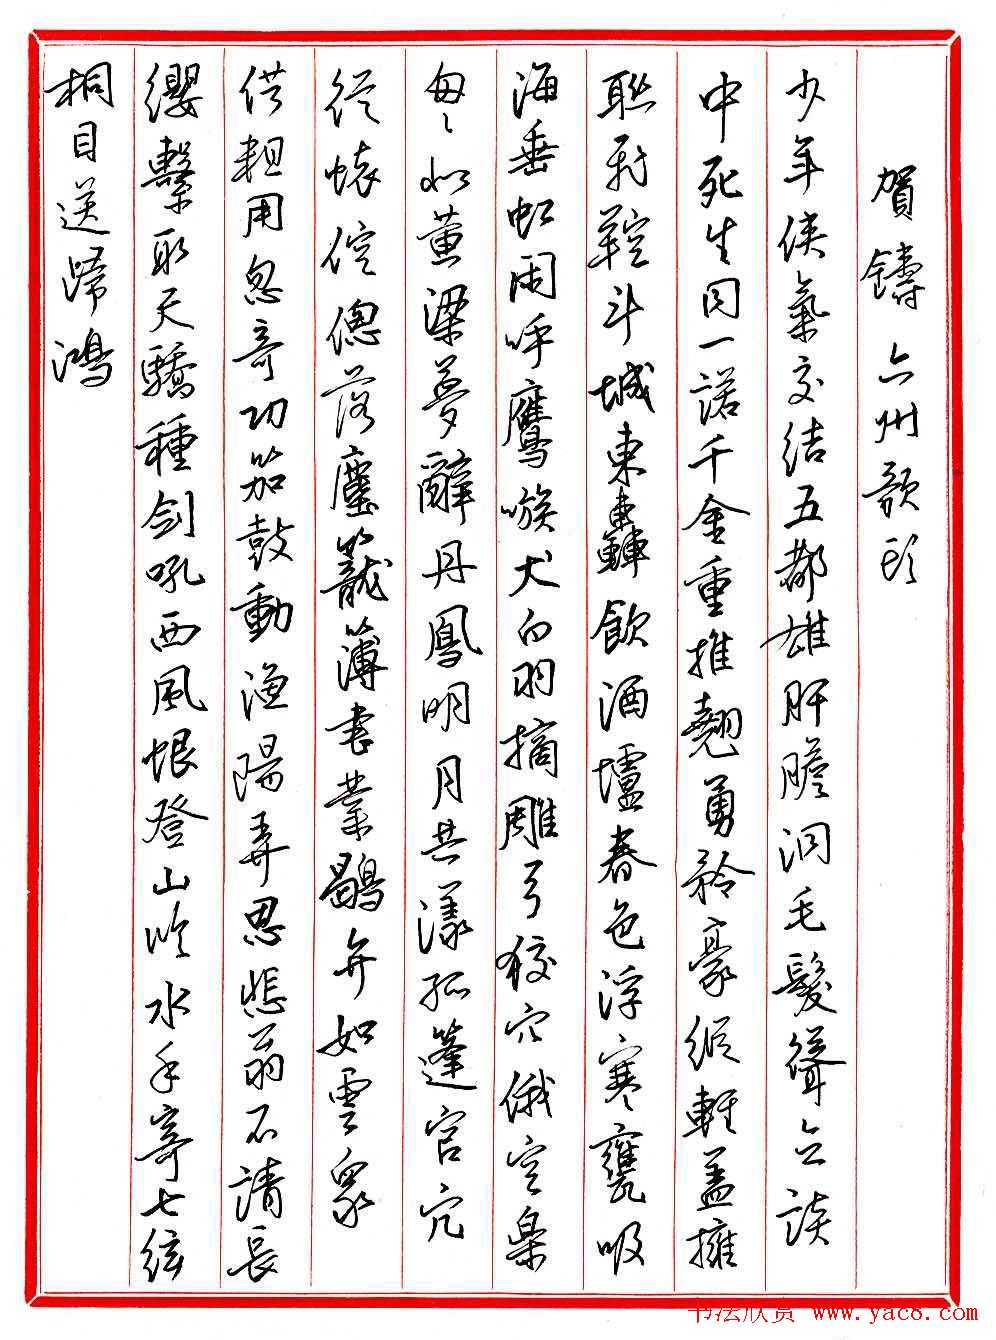 賀鑄 六州歌頭
少年俠氣交結五都雄肝膽洞毛髮聳立談
中死生同一諾千金重推翹勇矜豪縱輕蓋擁
聯飛鞚斗城東轟飲酒壚春色浮寒甕吸
海垂虹閒呼鷹嗾犬白羽摘雕弓狡穴俄空樂
匆匆如黃梁夢辭丹鳳明月共漾孤篷官冗
從懷倥傯落塵籠簿書叢鶡弁如雲衆
供粗用忽奇功笳鼓動漁陽弄思悲翁不請長
纓繫取天驕種劍吼西風恨登山臨水手寄七絃
桐目送歸鴻
书法欣赏 www.yac8.com